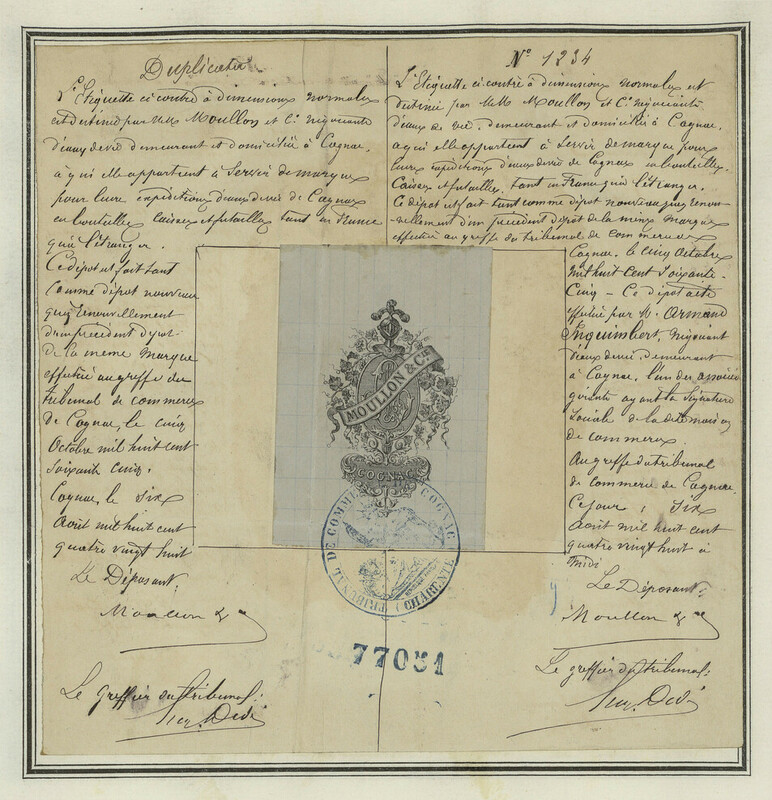 Duplicata
L'Etiquette ci contre à dimensions normales
est destiné par MM. Moullon et Cie négociants
d'eaux de vie demeurant et domicilié à Cognac,
à qui elle appartient à servir de marque
pour leurs expéditions d'eaux de vie de Cognac
en bouteilles, caisses et futailles tant en France
qu'à l'étranger.
Ce dépot est fait tant
comme dépot nouveau
que renouvellement
d'un précédent dépot
de la même marque
effectué au greffe du
tribunal de commerce
de Cognac, le cinq
Octobre mil huit cent
soixante cinq.
Cognac, le six
Août mil huit cent
quatre vingt huit
Le Déposant:
Moullon & Cie
Le greffier du tribunal:
N° 1234
L'Etiquette ci contre à dimensions normales est
destiné par MM. Moullon et Cie négociants
d'eaux de vie, demeurant et domicilié à Cognac,
à qui elle appartient à servir de marque pour
leurs expéditions d'eaux de vie de Cognac en bouteilles,
caisses et futailles, tant en France qu'à l'étranger.
Ce dépot est fait tant comme dépot nouveau que renou-
-vellement d'un précédent dépot de la même marque
effectué au greffe du tribunal de commerce de
Cognac, le cinq Octobre
mil huit cent soixante-
cinq — Ce dépot a été
effectué par M. Armand
Inquimbert, négociant
d'eaux de vie, demeurant
à Cognac, l'un des associés
gérants ayant la signature
sociale de la dite maison
de commerce.
Au greffe du tribunal
de commerce de Cognac,
Ce jour, six
Août mil huit cent
quatre vingt huit à
midi
Le Déposant:
Moullon & Cie
Le greffier du tribunal:
MOULLON & CIE
COGNAC
TRIBUNAL DE COMMERCE COGNAC
(CHARENTE)
77051